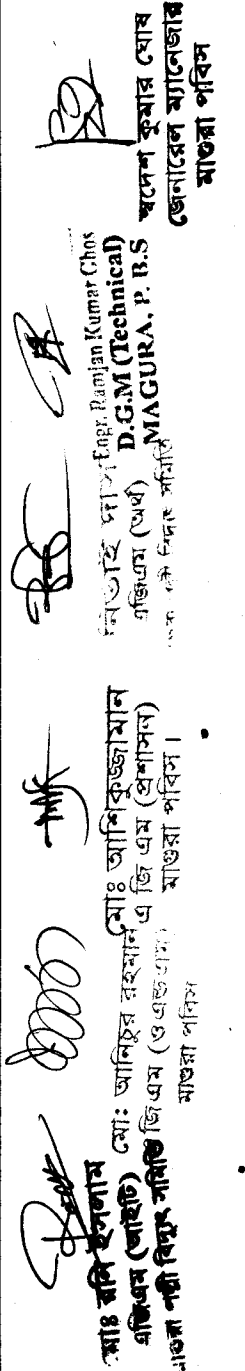 মোঃ রনি ইসলাম
এজিএম (আইটি)
মাগুরা পল্লী বিদ্যুৎ সমিতি
মোঃ আনিচুর রহমান
জিএম (ওএন্ডএম)
মাগুরা পবিস
মোঃ আশিকুজ্জামান
এ জি এম (প্রশাসন)
মাগুরা পবিস।
নিতাই দাস
এজিএম (অর্থ)
পল্লী বিদ্যুৎ সমিতি
Engr. Ramjan Kumar Ghos
D.G.M (Technical)
MAGURA, P. B.S
স্বদেশ কুমার ঘোষ
জেনারেল ম্যানেজার
মাগুরা পবিস